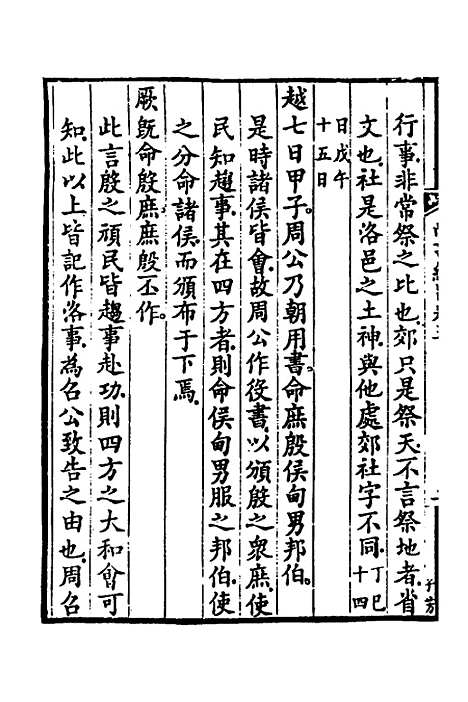 行事非常祭之比也郊只是祭天不言祭地者省
文也社是洛邑之土神與他處郊社字不同丁巳十四
日戊午十五日
越七日甲子周公乃朝用書命庶殷侯甸男邦伯
是時諸侯皆會故周公作役書以頒殷之衆庶使
民知趨事其在四方者則命侯甸男服之邦伯使
之分命諸侯而頒布于下焉
厥旣命殷庶庶殷丕作
此言殷之頑民皆趨事赴功則四方之大和會可
知此以上皆記作洛事為召公致告之由也周召